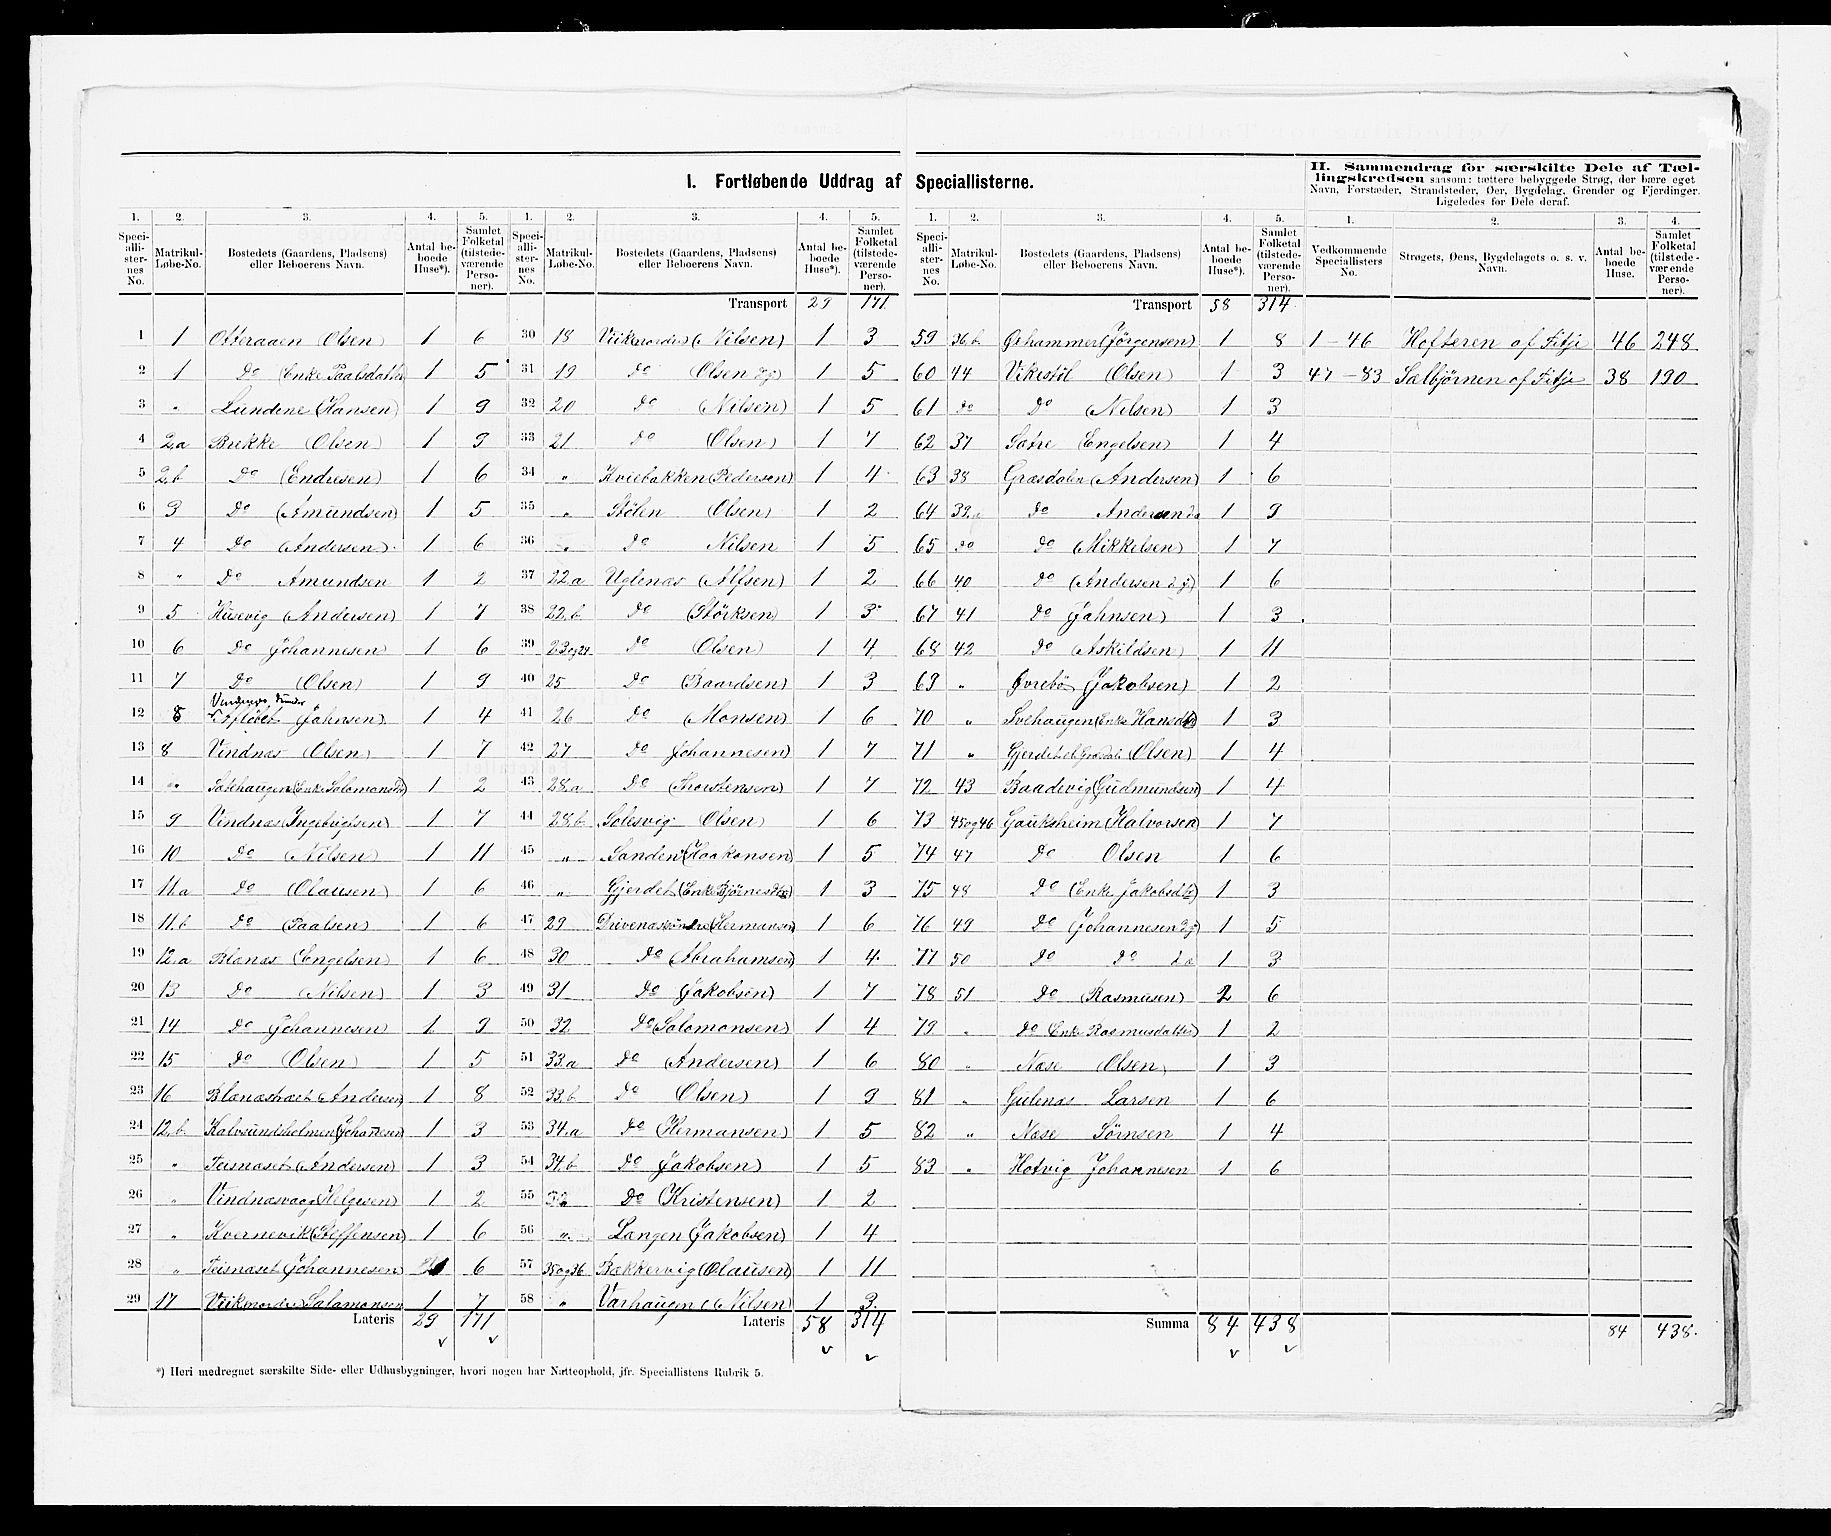 I. Fortløbende Uddrag af Speciallisterne.
II. Sammendrag for særskilte Dele af Tællingskredsen saasom: tættere bebyggede Strøg, der bære eget Navn, Forstæder, Strandsteder, Øer, Bygdelag, Grender og Fjerdinger. Ligeledes for Dele deraf.
1. 2. 3. 4. 5.
Speciallisternes No. Matrikul-Løbe-No. Bostedets (Gaardens, Pladsens) eller Beboerens Navn. Antal beboede Huse*). Samlet Folketal (tilstedeværende Personer).
1 1 Otteraaen (Olsen) 1 6
2 1 Do (Enke Paalsdatter) 1 5
3 " Lundene (Hansen) 1 9
4 2.a Brekke (Olsen) 1 9
5 2.b Do (Endresen) 1 6
6 3 Do (Amundsen) 1 5
7 4 Do (Andersen) 1 6
8 " Do Amundsen 1 2
9 5 Husevig (Andersen) 1 7
10 6 Do Johannesen) 1 6
11 7 Do (Olsen) 1 9
12 8 (Jahnsen) 1 4
13 8 Vindnæs (Olsen) 1 7
14 " Satehaugen (Enke Salomonsd) 1 2
15 9 Vindnæs (Ingebrigtsen) 1 7
16 10 Do (Nilsen) 1 11
17 11.a Do (Olausen) 1 6
18 11.b Do (Paalsen) 1 6
19 12.a Blanæs (Engelsen) 1 6
20 13 Do (Nilsen) 1 3
21 14 Do Johannesen) 1 9
22 15 Do (Olsen) 1 5
23 16 (Andersen) 1 8
24 12.b Kalvsundsholmen (Johanesen) 1 3
25 " Teisnæset (Andersen) 1 3
26 " Vindnæsvaag (Helgesen) 1 2
27 " Kvernevik (Steffensen) 1 6
28 " Teisnæset (Johannesen) 1 6
29 17 Viiknordre (Salamonsen 1 7
Lateris 29 171
1. 2. 3. 4. 5.
Speciallisternes No. Matrikul-Løbe-No. Bostedets (Gaardens, Pladsens) eller Beboerens Navn. Antal beboede Huse*). Samlet Folketal (tilstedeværende Personer).
Transport 29 171
30 18 Viiknordre (Nilsen) 1 3
31 19 Do (Olsen 1 5
32 20 Do (Nilsen) 1 5
33 21 Do (Olsen) 1 7
34 " Kviebakken (Pedersen) 1 4
35 " Stølen (Olsen) 1 2
36 " Do Nilsen 1 5
37 22.a Uglenæs (Alfsen) 1 2
38 22.b Do (Størksen) 1 3
39 23og24 Do (Olsen) 1 4
40 25 Do (Baardsen) 1 3
41 26 Do (Monsen) 1 6
42 27 Do Johannesen) 1 7
43 28.a Do (Thorstensen) 1 7
44 28.b Solesvig (Olsen) 1 6
45 " Sanden (Haakonsen) 1 5
46 " Gjerdet (Enke Bjørnesdtr) 1 3
47 29 (Hermansen) 1 6
48 30 Do (Abrahamsen) 1 4
49 31 Do (Jakobsen) 1 7
50 32 Do (Salomonsen) 1 4
51 33.a Do (Andersen) 1 6
52 33.b Do (Olsen) 1 9
53 34.a Do (Hermansen) 1 5
54 34.b Do Jakobsen) 1 5
55 Do (Kristensen) 1 2
56 " Langen (Jakobsen) 1 4
57 35og36 Bækkervig (Olausen) 1 11
58 " Varhaugen (Nilsen) 1 3
Lateris 58 314
1. 2. 3. 4. 5.
Speciallisternes No. Matrikul-Løbe-No. Bostedets (Gaardens, Pladsens) eller Beboerens Navn. Antal beboede Huse*). Samlet Folketal (tilstedeværende Personer).
Transport 58 314
59 36.b Ørhammer (Jørgensen) 1 8
60 44 Vikestøl (Olsen) 1 3
61 do Do (Nilsen) 1 3
62 37 Sætre (Engelsen) 1 4
63 38 Græsdalen (Andersen) 1 6
64 39.a do Andersen 1 9
65 do Do (Mikkelsen) 1 7
66 40 Do (Andersen 1 6
67 41 Do Jahnsen) 1 3
68 42 Do (Askildsen) 1 11
69 " Øvrebø (Jakobsen) 1 2
70 " Svehaugen (Enke Hansdtr) 1 3
71 " Gjerdet (Olsen) 1 4
72 43 Baadevig (Gudmundsen) 1 4
73 45og46 Gauksheim (Halvorsen 1 7
74 47 Do Olsen 1 6
75 48 Do (Enke Jakobsdtr) 1 3
76 49 Do (Johannesen 1 5
77 50 Do Do 1 3
78 51 Do (Rasmusen) 2 6
79 " Do Enke Rasmusdatter 1 2
80 " Næse (Olsen) 1 3
81 " Gulenæs Larsen 1 6
82 " Næse Sørnsen 1 4
83 " Hotvig Johannesen 1 6
Summa 84 438
1. 2. 3. 4.
Vedkommende Speciallisters No. Strøgets, Øens, Bygdelagets o. s. v. Navn. Antal beboede Huse. Samlet Folketal (tilstedeværende Personer).
1 – 46 Hofteren af Fitje 46 248
47 – 83 Sælbjørnen af Fitje 38 190
84 438.
*) Heri medregnet særskilte Side- eller Udhusbygninger, hvori nogen har Natteophold, jfr. Speciallistens Rubrik 5.